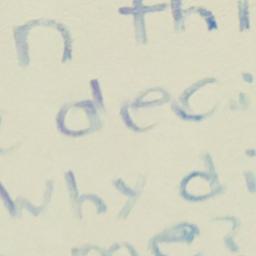 n thi
deci
why di
me?